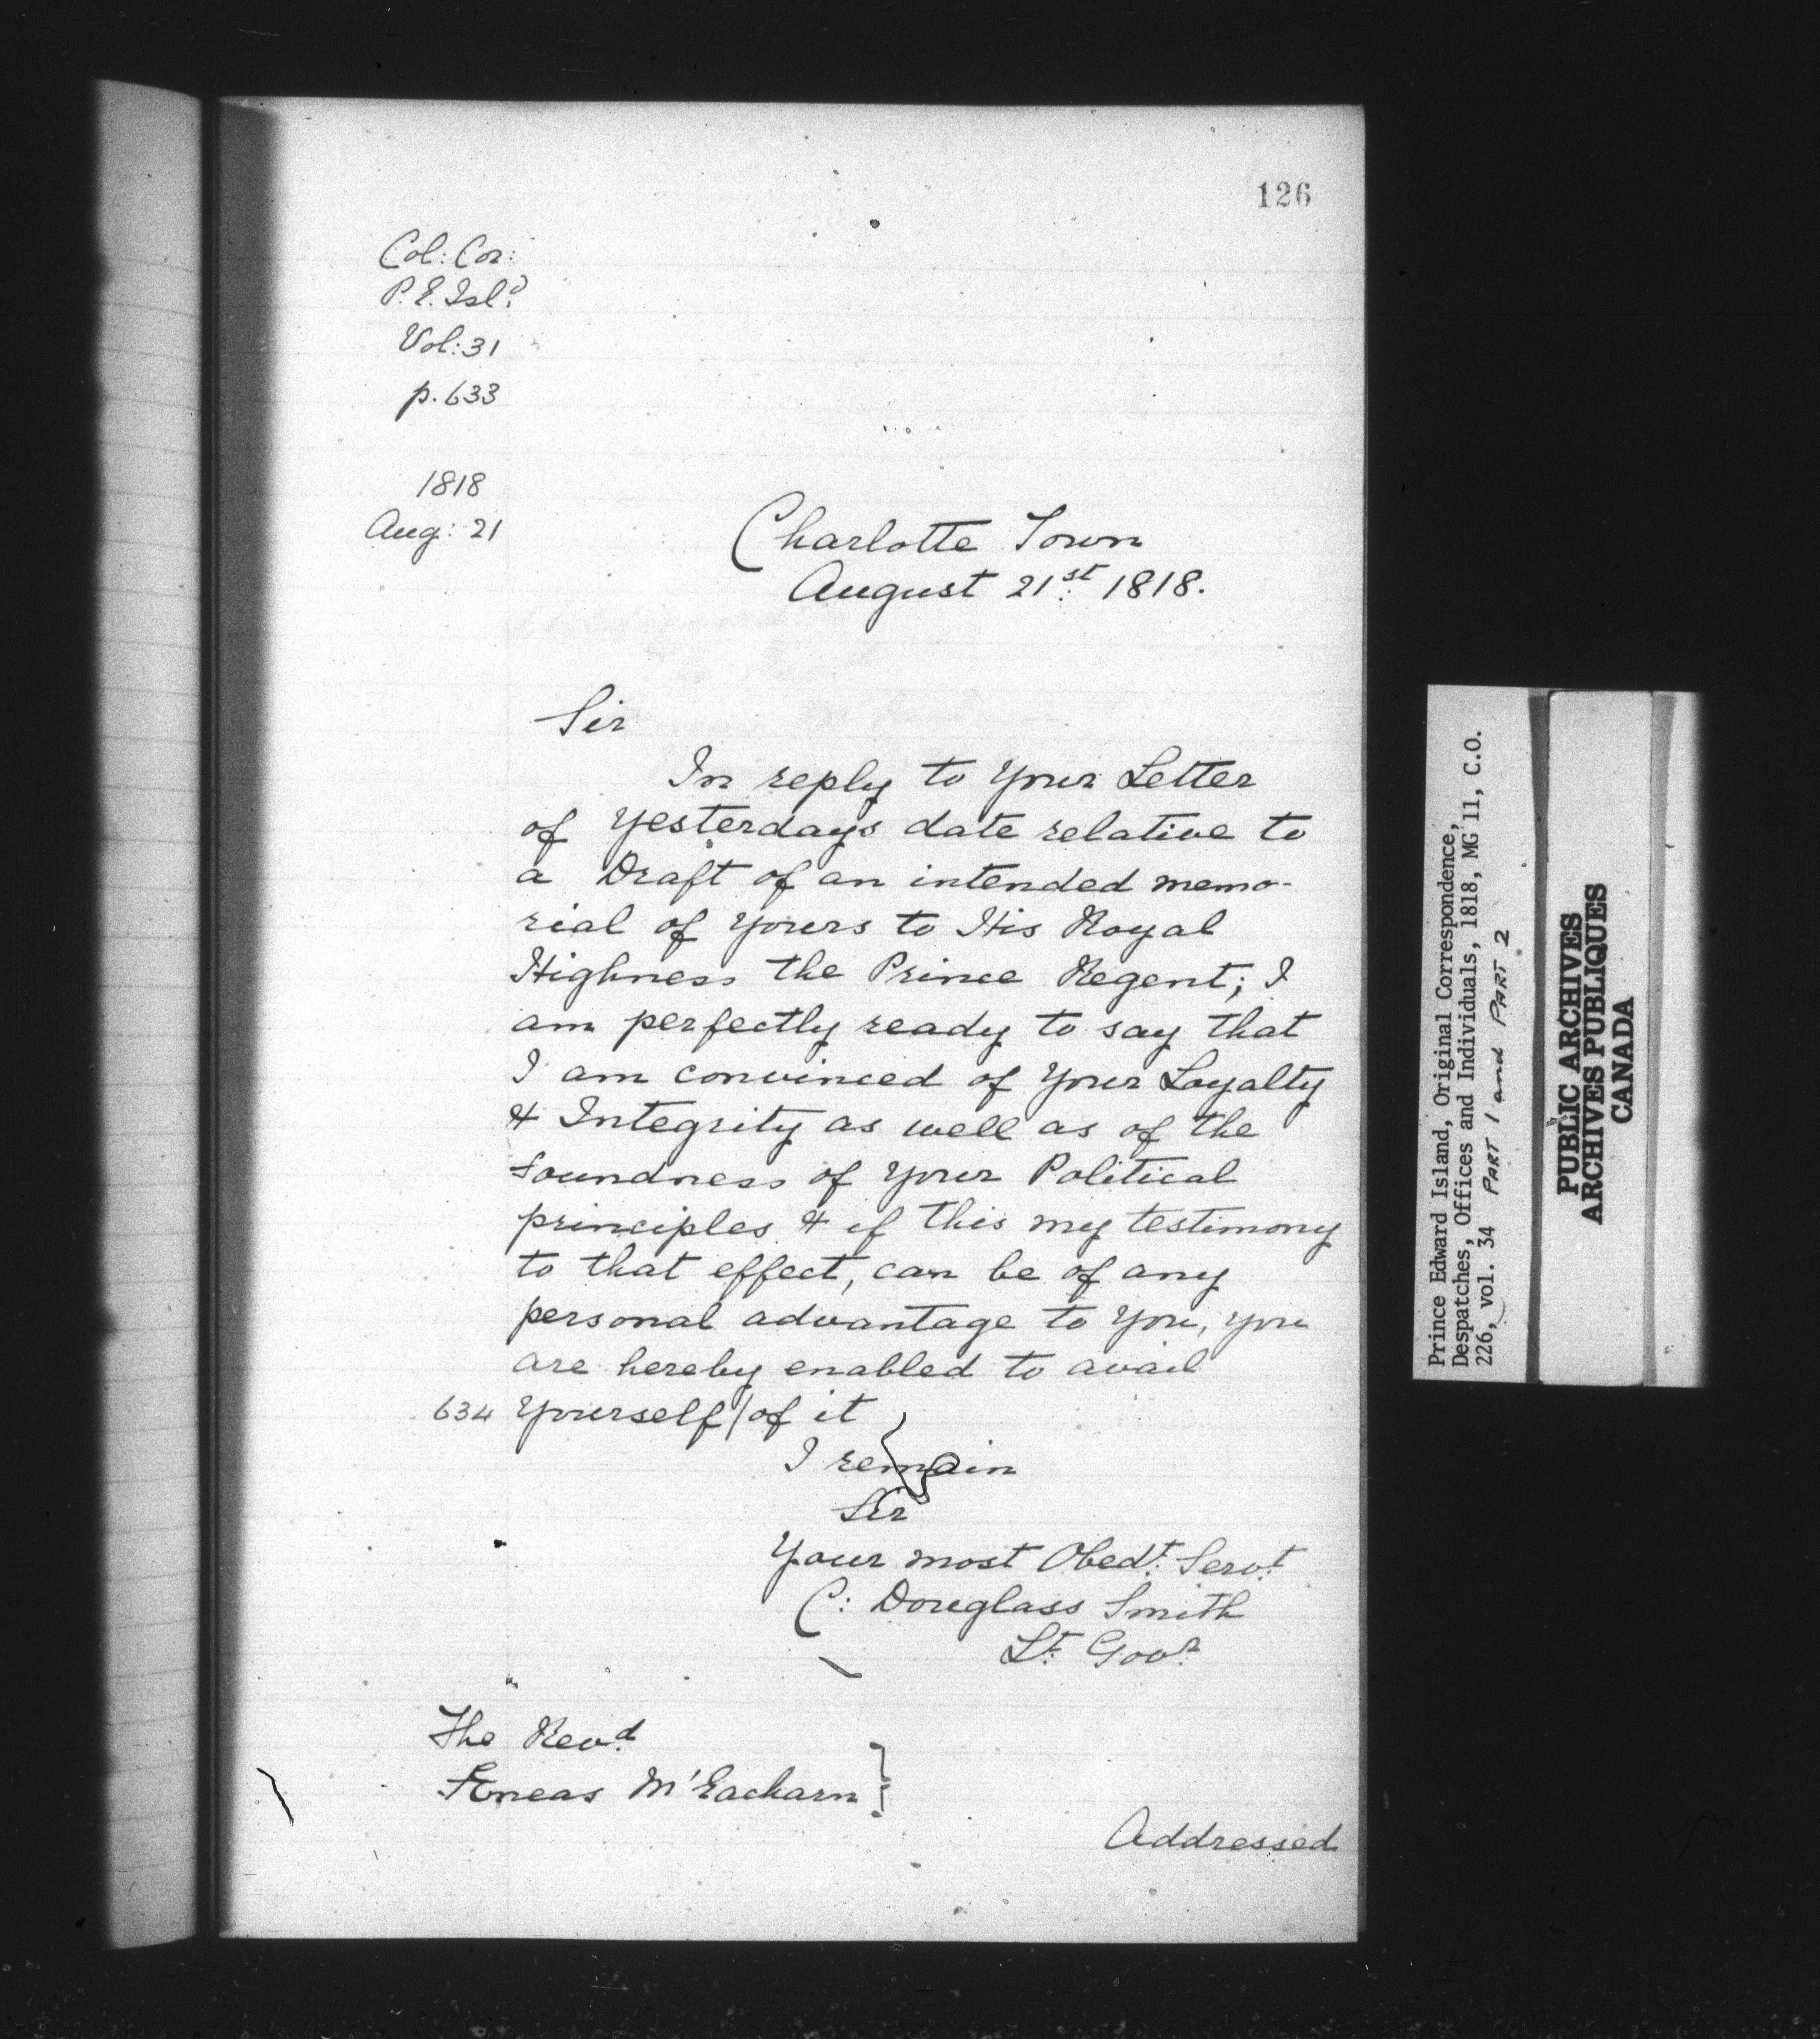 126
Col: Cor:
P. E. Isld.
Vol: 31
p. 633
1818
Aug: 21
Charlotte Town
August 21st. 1818.
Sir
In reply to Your Letter
of Yesterdays date relative to
a Draft of an intended memo-
rial of yours to His Royal
Highness the Prince Regent; I
am perfectly ready to say that
I am convinced of Your Loyalty
& Integrity as well as of the
soundness of your Political
principles & if this my testimony
to that effect, can be of any
personal advantage to You, you
are hereby enabled to avail
634 Yourself/of it
I remain
Sir
Your most Obedt. Servt.
C: Douglass Smith
Lt. Govr.
The Revd.
Æneas M'Eacharn
Addressed
Prince Edward Island, Original Correspondence,
Despatches, Offices and Individuals, 1818, MG 11, C.O.
226, vol. 34 PART 1 and PART 2
PUBLIC ARCHIVES
ARCHIVES PUBLIQUES
CANADA